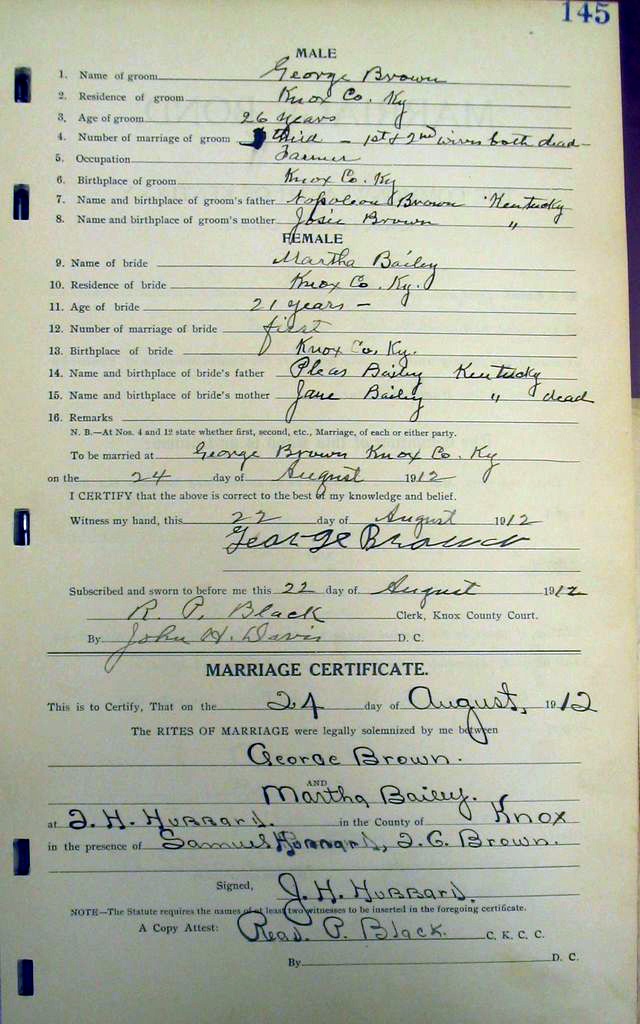 145
MALE
1. Name of groom George Brown
2. Residence of groom Knox Co. Ky
3. Age of groom 26 years
4. Number of marriage of groom third - 1st & 2nd wives both dead-
5. Occupation Farmer
6. Birthplace of groom Knox Co. Ky
7. Name and birthplace of groom's father Napoleon Brown Kentucky
8. Name and birthplace of groom's mother Josie Brown "
FEMALE
9. Name of bride Martha Bailey
10. Residence of bride Knox Co. Ky.
11. Age of bride 21 years -
12. Number of marriage of bride first
13. Birthplace of bride Knox Co. Ky.
14. Name and birthplace of bride's father Pleas Bailey Kentucky
15. Name and birthplace of bride's mother Jane Bailey " dead
16. Remarks
N. B.—At Nos. 4 and 12 state whether first, second, etc., Marriage, of each or either party.
To be married at George Brown Knox Co. Ky
on the 24 day of August 1912
I CERTIFY that the above is correct to the best of my knowledge and belief.
Witness my hand, this 22 day of August 1912
George Brown
Subscribed and sworn to before me this 22 day of August 1912
R. P. Black Clerk, Knox County Court.
By John H. Davis D. C.
MARRIAGE CERTIFICATE.
This is to Certify, That on the 24 day of August, 1912
The RITES OF MARRIAGE were legally solemnized by me between
George Brown.
AND
Martha Bailey.
at J. H. Hubbard. in the County of Knox
in the presence of Samuel Hubbard, J. C. Brown.
Signed, J. H. Hubbard.
NOTE—The Statute requires the names of at least two witnesses to be inserted in the foregoing certificate.
A Copy Attest: Read. P. Black C. K. C. C.
By D. C.